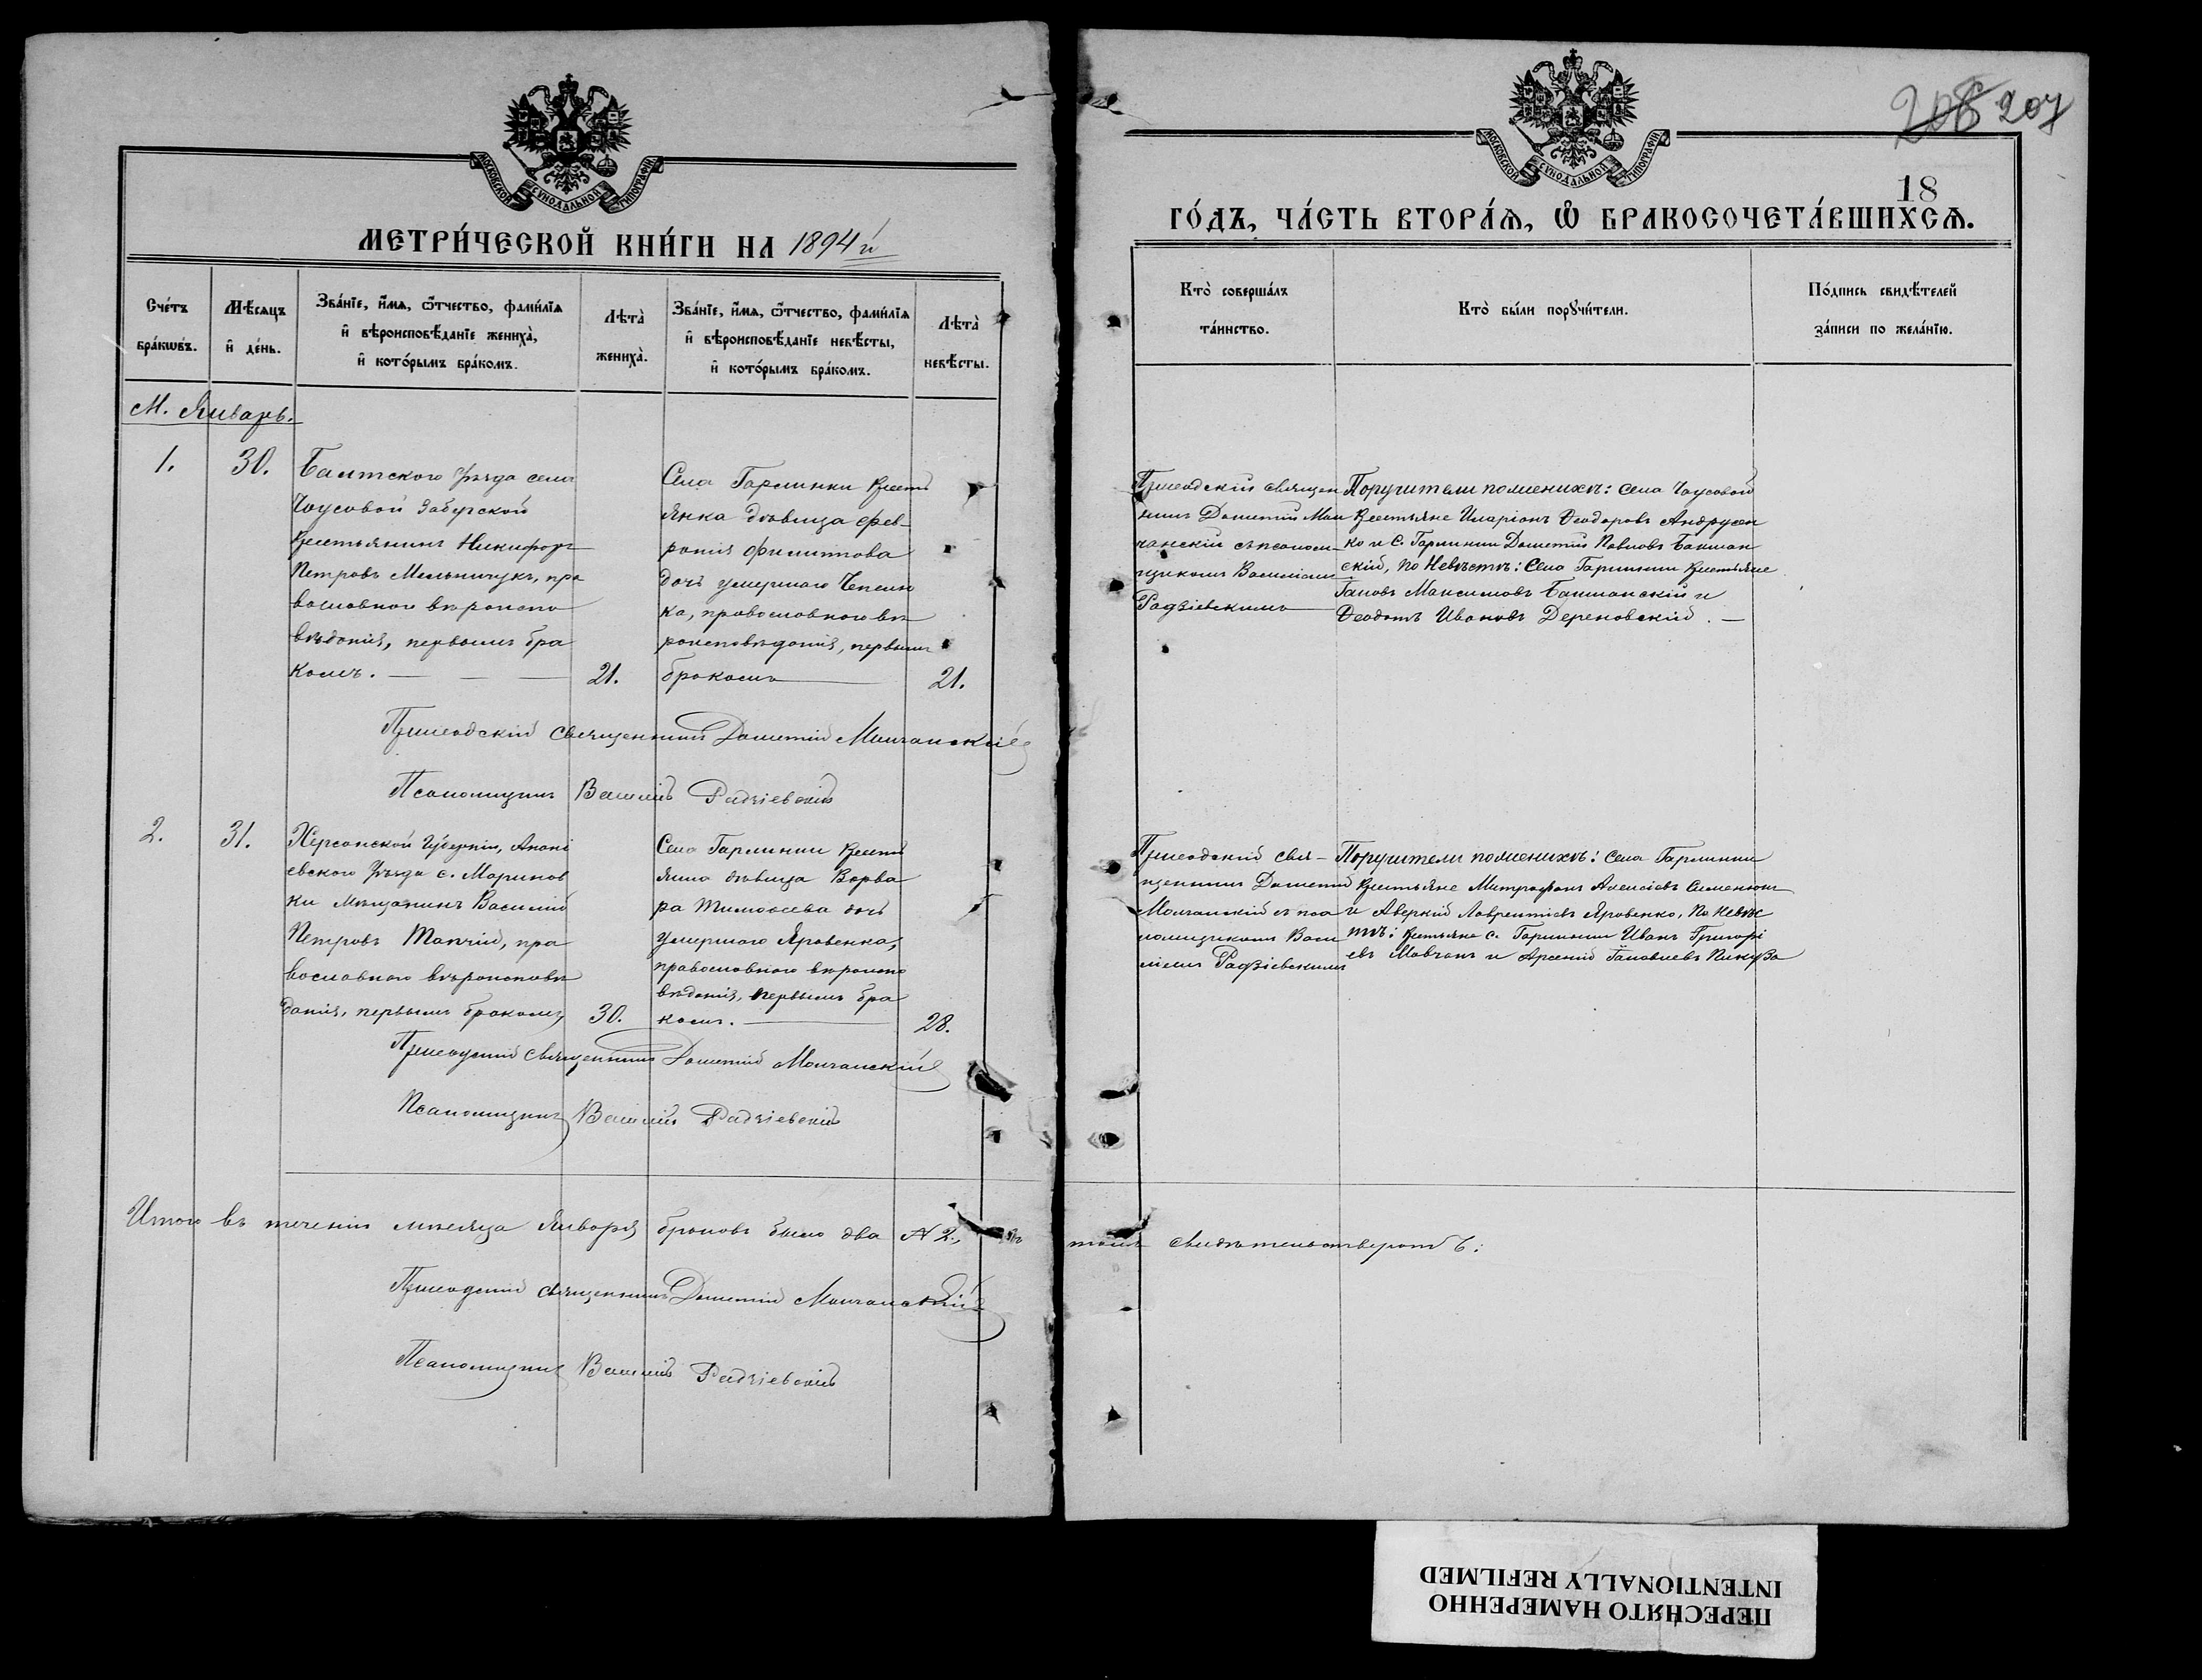 МОСКОВСКОЙ СѴНОДАЛЬНОЙ ТИПОГРАФІИ
МЕТРИ́ЧЕСКОЙ КНИ́ГИ НА 1894 й
Сче́тъ бра́кѡвъ.
Мѣ́сяцъ и҆ де́нь.
Зва́нїе, и҆́мѧ, ѻ҆́тчество, фами́лїѧ
и҆ вѣроисповѣ́данїе жениха̀,
и҆ кото́рымъ бра́комъ.
Лѣта̀ жениха̀.
Зва́нїе, и҆́мѧ, ѻ҆́тчество, фами́лїѧ
и҆ вѣроисповѣ́данїе невѣ́сты,
и҆ кото́рымъ бра́комъ.
Лѣта̀ невѣ́сты.
М. Январь.
1.
30.
Балтского уѣзда села
Чаусовой Забугской
Крестьянинъ Никифоръ
Петровъ Мельничукъ, пра
вославнаго вѣроиспо
вѣданія, первымъ бра
комъ.
21.
Села Гарминки крестъ
янка дѣвица Фев-
ронія Филиппова
дочь умершаго
ка, православнаго вѣ
роисповѣданія, первымъ
бракомъ
21.
Приходскій священникъ Дометій Молчанскій
Псаломщикъ Василій Радзіевскій
2.
31.
Херсонской Губерніи, Анані
евскаго уѣзда с. Маринов
ки мѣщанинъ Василій
Петровъ Топчій, пра
вославнаго вѣроисповѣ
данія, первымъ бракомъ,
30.
Села Гарминки кресть
янка дѣвица Варва
ра Тимоѳеева дочь
умершаго Яровенка,
православнаго вѣроиспо
вѣданія, первымъ бра
комъ.
28.
Приходскій священникъ Дометій Молчанскій
Псаломщикъ Василій Радзіевскій
Итого въ теченіи мѣсяца Января браковъ было два № 2., въ томъ свидѣтельствуютъ:
Приходскій священникъ Дометій Молчанскій
Псаломщикъ Василій Радзіевскій
208 207
18
МОСКОВСКОЙ СѴНОДАЛЬНОЙ ТИПОГРАФІИ
ГО́ДЪ, ЧА́СТЬ ВТОРА́Ѧ, Ѽ БРАКОСОЧЕТА́ВШИХСѦ.
Кто̀ соверша́лъ
та́инство.
Кто̀ бы́ли порꙋчи́тели.
По́дпись свидѣ́телей
за́писи по жела́нїю.
Приходскій священ
никъ Дометій Мол
чанскій съ псалом-
щикомъ Василіемъ
Радзіевскимъ
Поручители по женихѣ: села Чаусовой
крестьяне Иларіонъ Ѳеодоровъ Андрусен
ко и с. Гарминки Дометій Павловъ Бакшан
скій, по невѣстѣ: Села Гарминки крестьяне
Іаковъ Максимовъ Бакшанскій и
Ѳеодотъ Ивановъ Дереновскій.
Приходскій свя-
щенникъ Дометій
Молчанскій съ пса
ломщикомъ Васи
ліемъ Радзіевскимъ
Поручители по женихѣ: села Гарминки
крестьяне Митрофанъ Алексіевъ Семенюкъ
и Аверкій Лаврентіевъ Яровенко, по невѣс
тѣ: крестьяне с. Гарминки Иванъ Григорі
евъ Мовчанъ и Арсеній Іаковлевъ Пикуза
ПЕРЕСНЯТО НАМЕРЕННО
INTENTIONALLY REFILMED